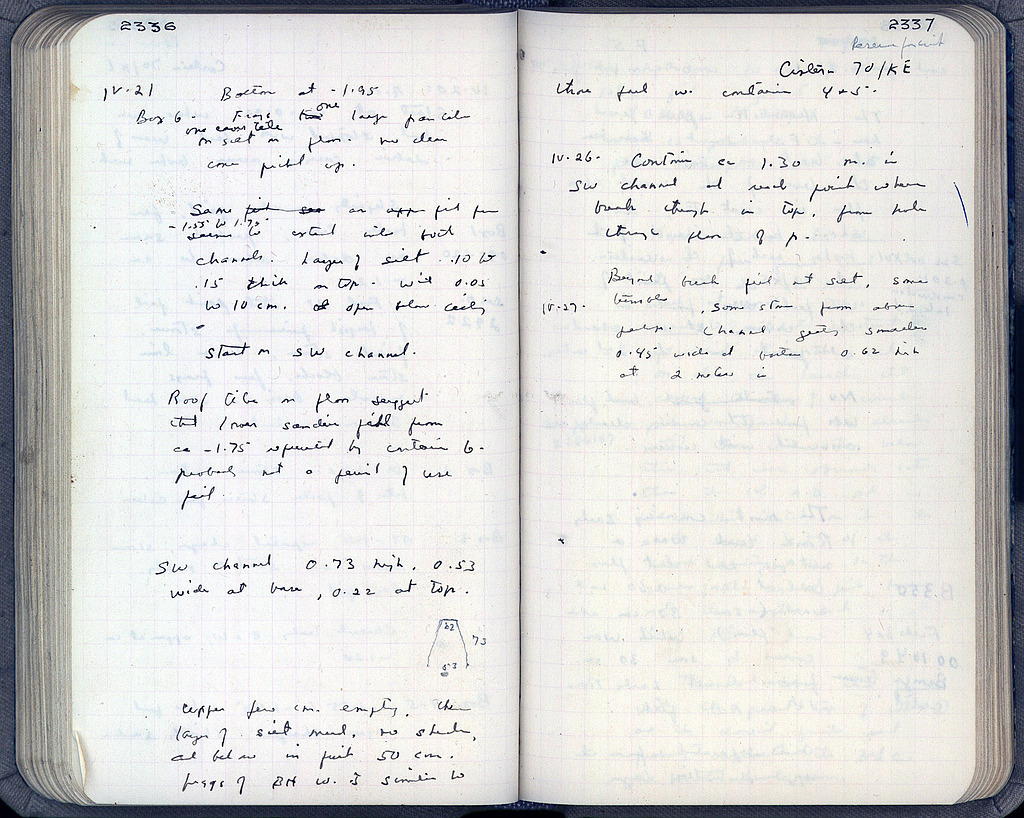 2336
IV.21 Bottom at -1.95
Box 6. Frags one large pan tile
one cover tile
on silt on floor. no clean
cone picked up.
Same on upper fill from
-1.55 to 1.75
seems to extend into both
channels. Layer of silt .10 to
.15 thick on top. with 0.05
to 10 cm. of open below ceiling
start on SW channel.
Roof tiles on floor suggest
that lower sandier fill from
ca -1.75 represented by container 6.
probably not a period of use
fill
SW channel 0.73 high, 0.53
wide at base, 0.22 at top.
22
73
53
upper few cm. empty, then
layer of silt mud, no sherds,
at below in fill 50 cm.
frags of BH w. I similar to
2337
Cistern 70/KE
those found w. container 4+5.
IV.26. Container ca 1.30 m. in
SW channel at point where
break through in top, from hole
through floor of p.
Beyond break fill of silt, some
IV.27. , some stone from above
perhaps. Channel gets smaller
0.45 wide at bottom 0.62 high
at 2 meters in